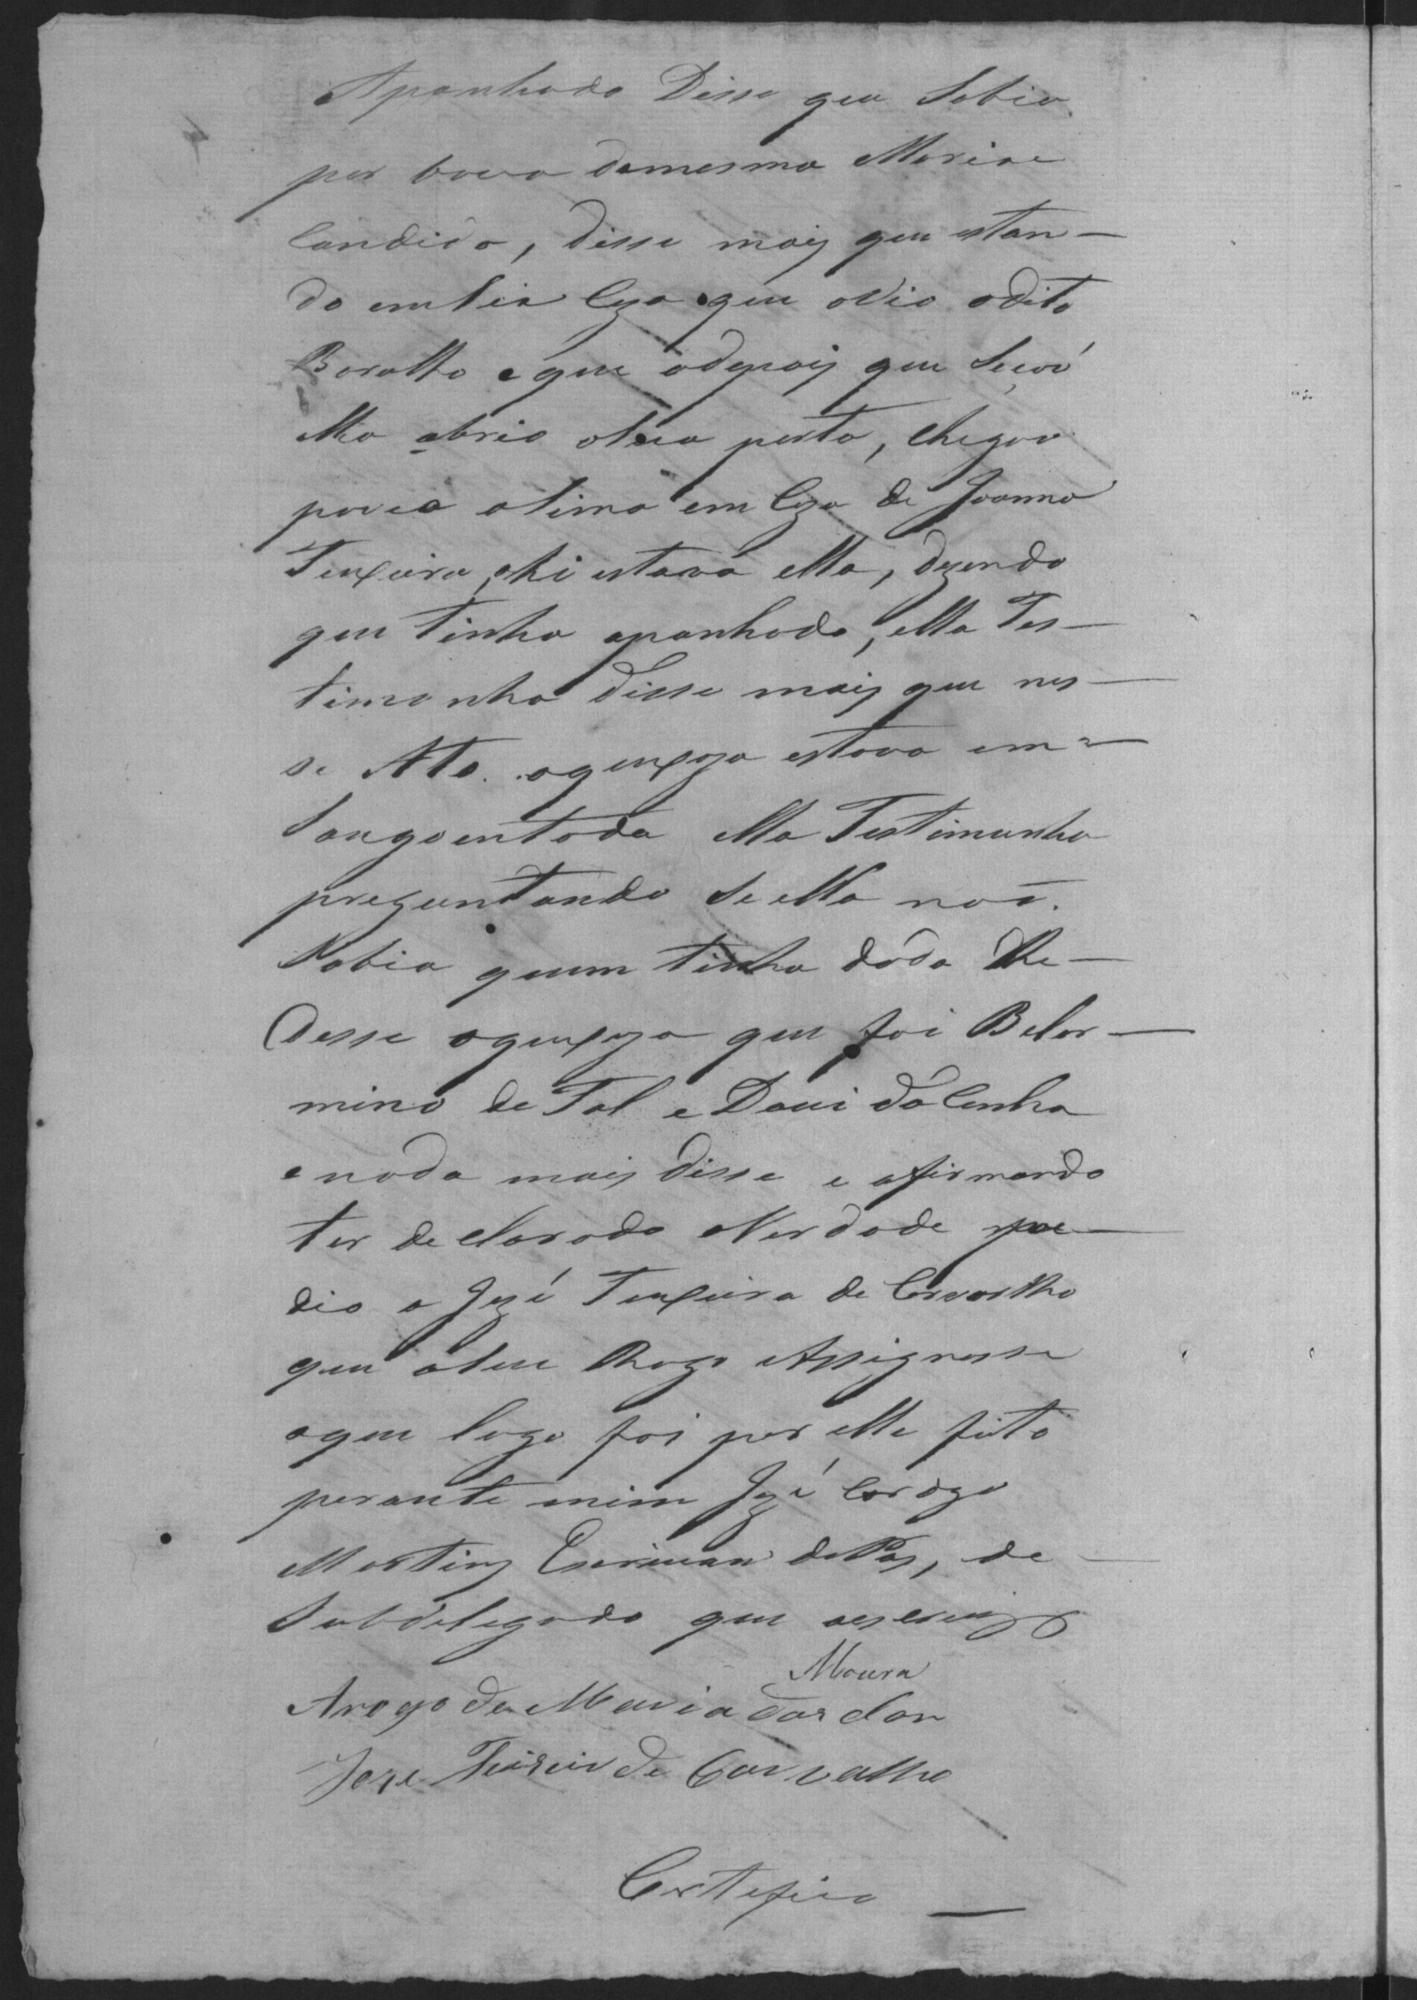 Apanhado Disse que Sabia
por boca da mesma Maria
Candida, disse mais que estan-
do em sua Caza que ovio o dito
Baralho e que adepois que
ella abrio a sua porta, chegou
pouco asima em Caza de Joanna
Teixeira, ahi estava ella, dizendo
que tinha apanhado, ella Tes-
timunha disse mais que nes-
se Ato. aqueixoza estava em-
sangoentada ella Testimunha
preguntando se ella não.
Sabia quem tinha dado lhe-
Desse aqueixoza que foi Belar-
mino de Tal e Davi da Cunha
e nada mais disse e afirmando
ter declarado a Verdade pe-
dio a Jozé Teixeira de Carvalho
que a seu Rogo Assignasse
oque logo foi por elle feito
perante mim Jozé Cardozo
Martins Escrivan da Paz, de
Subdelegado que escrevy
Moura
Arogo de Maria das dor
Joze Teixeir de Carvalho
Certefico